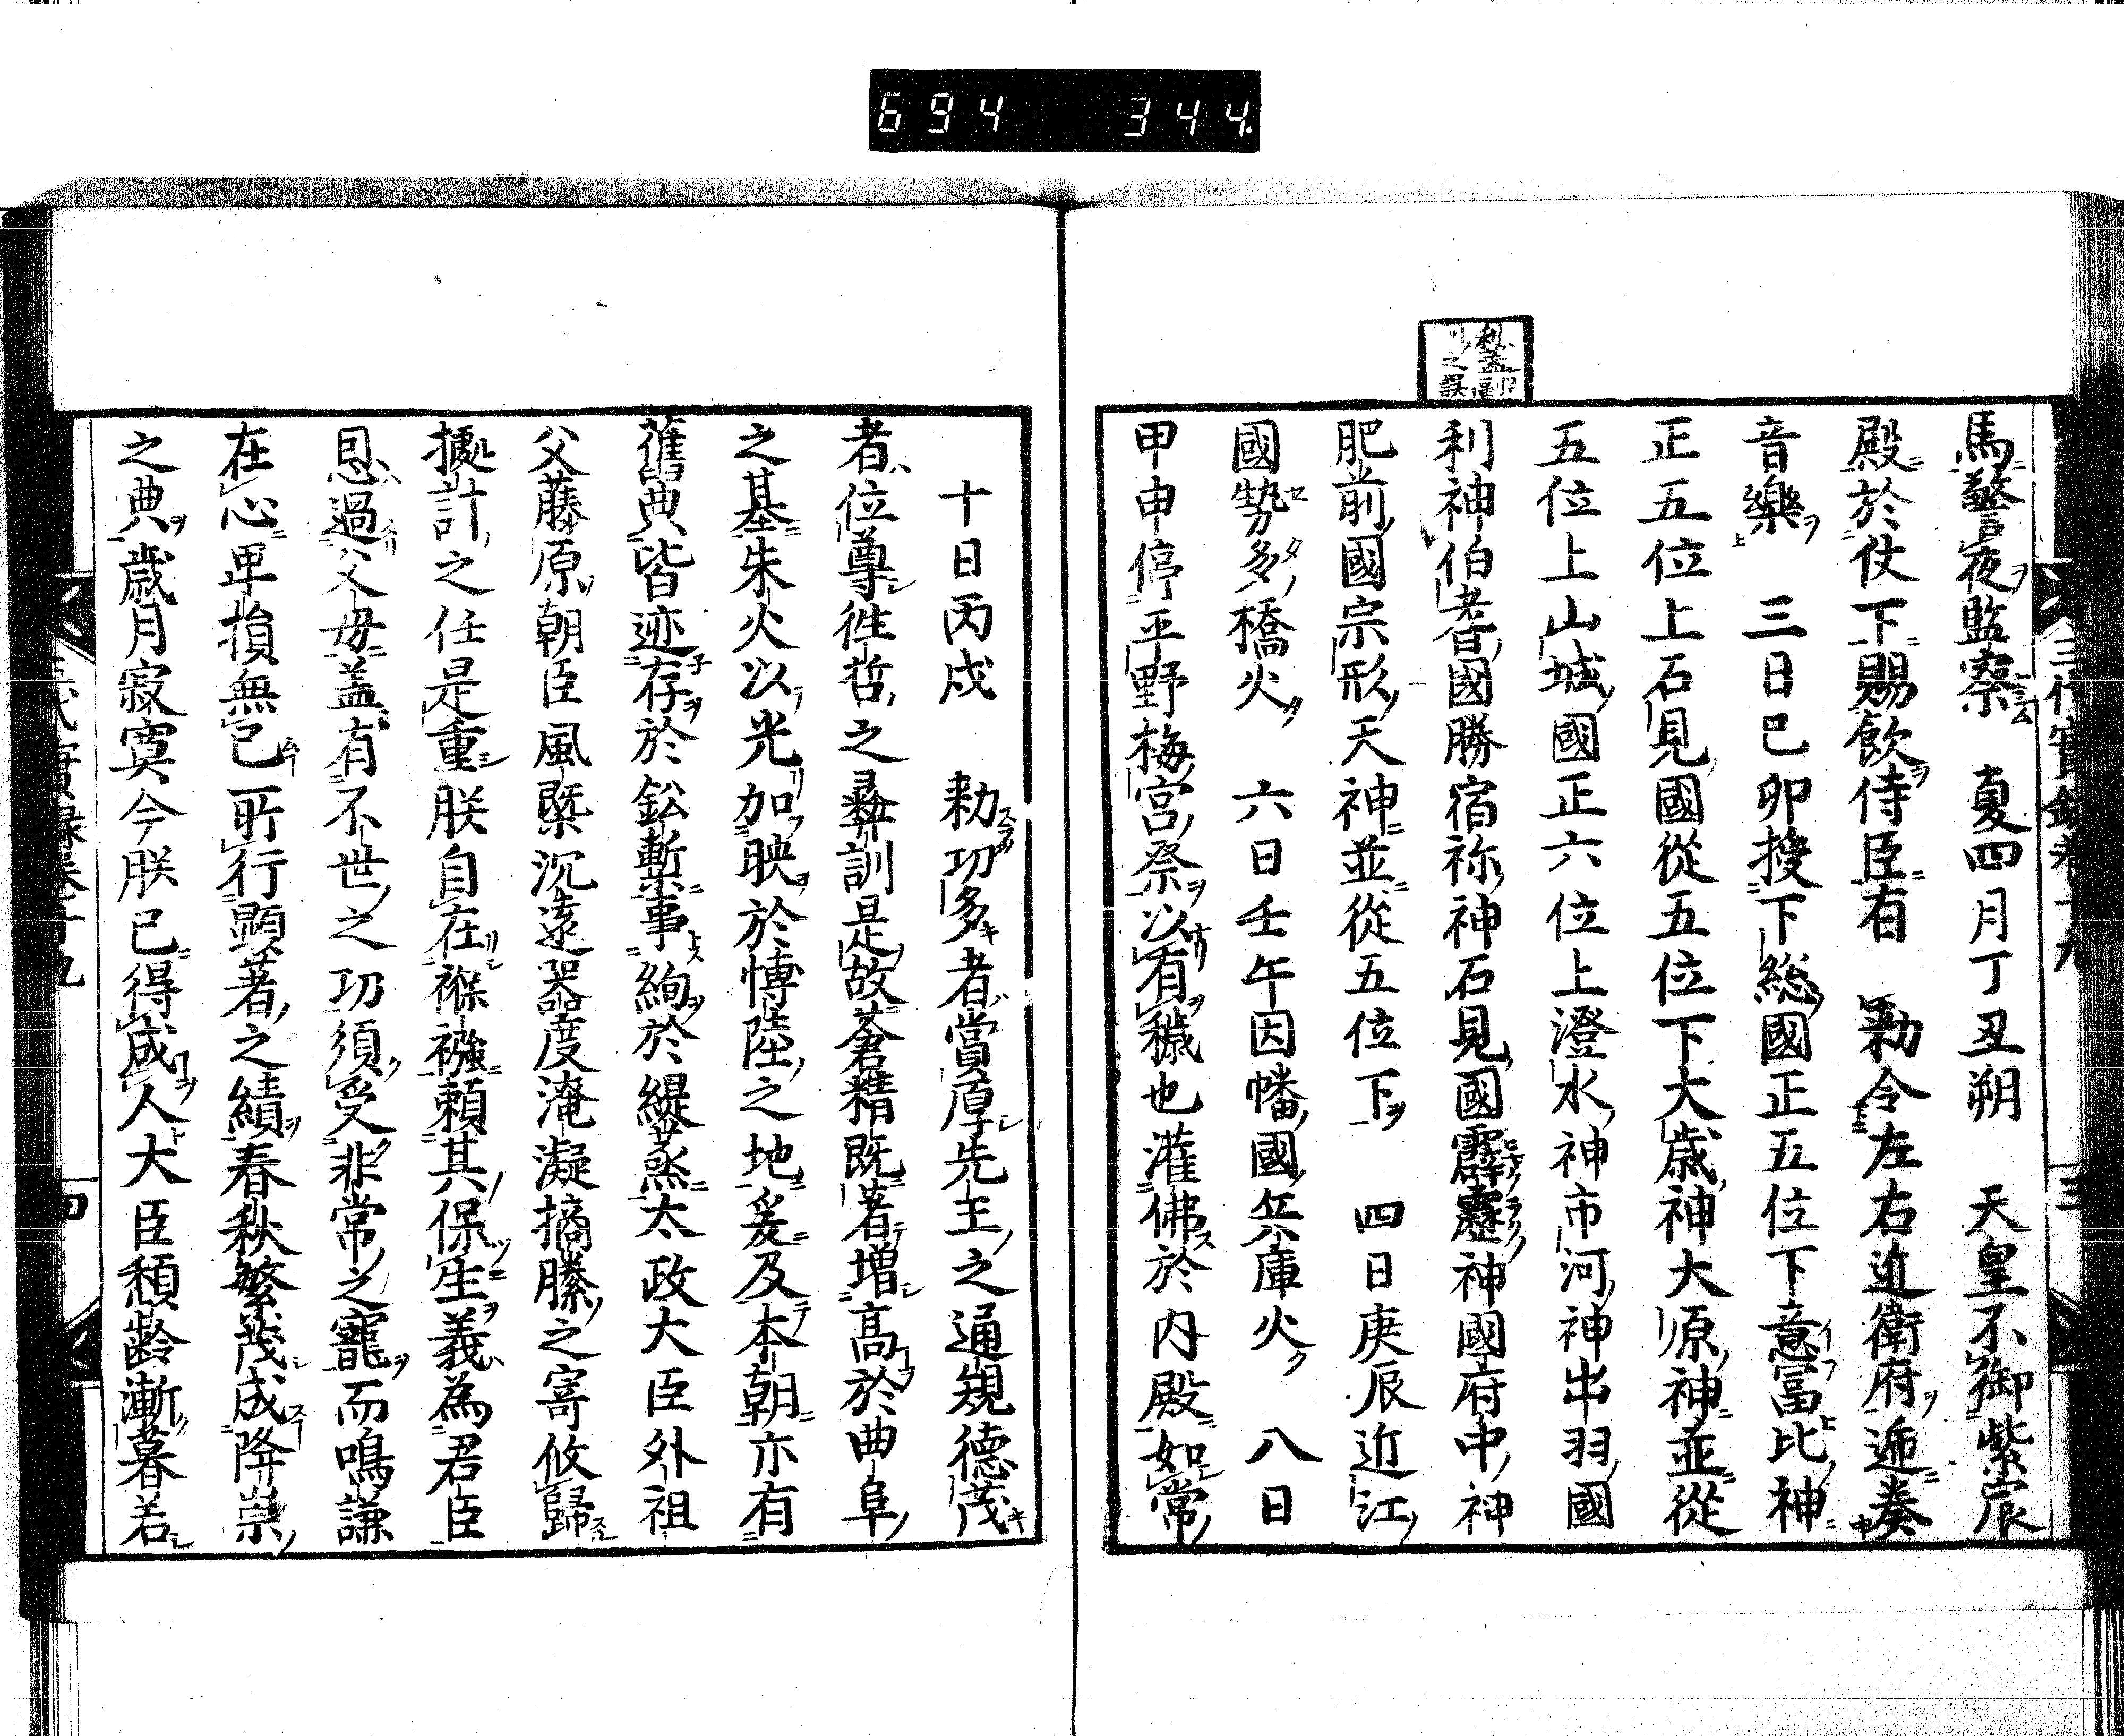 694 344.
馬警夜監察 夏四月丁丑朔 天皇不御紫宸
殿於仗下賜飲侍臣有 勅令左右近衛府遞奏
音樂 三日巳卯授下総國正五位下意冨比神
正五位上石見國從五位下大歳神大原神並從
五位上山城國正六位上澄水神市河神出羽國
利神伯耆國勝宿祢神石見國霹靂神國府中神
肥前國宗形天神並從五位下 四日庚辰近江
國勢多橋火 六日壬午因幡國兵庫火 八日
甲申停平野梅宮祭以有穢也灌佛於内殿如常
十日丙戌 勅功多者賞厚先王之通規德茂
者位尊徃哲之彝訓是故蒼精既著増高於曲阜
之基朱火以光加映於博陸之地爰及本朝亦有
舊典皆迹存於鈆槧事絢於緹䒱太政大臣外祖
父藤原朝臣風槩沉遠器度淹凝摘勝之寄攸歸
據計之任是重朕自在褓襁賴其保生義為君臣
恩過父母蓋有不世之功須受非常之寵而鳴謙
在心卑損無已所行顯著之績春秋繁茂成降崇
之典歳月寂寞今朕已得成人大臣頽齡漸暮若
三代實録卷十九 三
三代實録卷十九 四